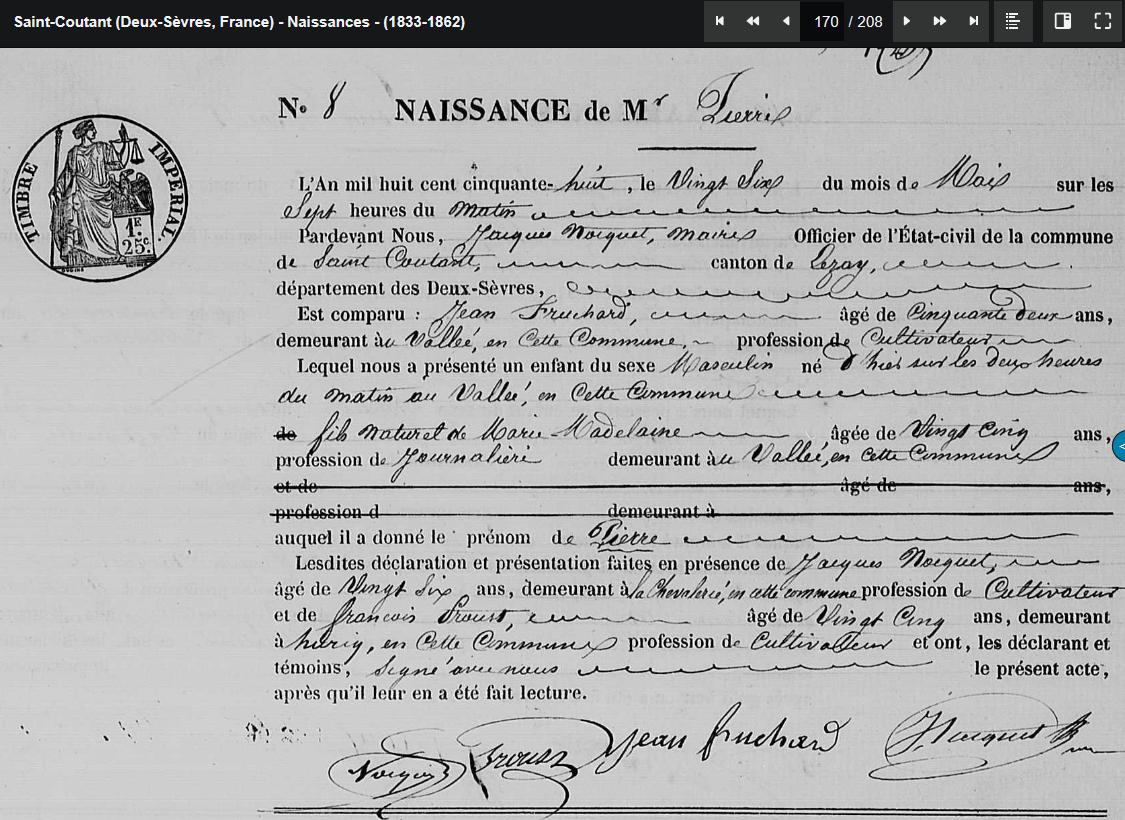 Saint-Coutant (Deux-Sèvres, France) - Naissances - (1833-1862)
170 / 208
N° 8 NAISSANCE de Mr Pierre
TIMBRE IMPERIAL.
1F. 25c.
L'An mil huit cent cinquante-huit, le Vingt Six du mois de Mais sur les
Sept heures du matin
Pardevant Nous, Jacques Nocquet, maire Officier de l'État-civil de la commune
de Saint Coutant, canton de Lezay,
département des Deux-Sèvres,
Est comparu : Jean Fruchard, âgé de Cinquante deux ans,
demeurant àu Vallée, en Cette Commune, profession de Cultivateur
Lequel nous a présenté un enfant du sexe Masculin né d'hier sur les deux heures
du matin au Vallée, en Cette Commune
de fils naturel de Marie Madelaine âgée de Vingt Cinq ans,
profession de Journalière demeurant àu Vallée, en Cette Commune
et de âgé de ans,
profession d demeurant à
auquel il a donné le prénom de Pierre
Lesdites déclaration et présentation faites en présence de Jacques Nocquet,
âgé de Vingt Six ans, demeurant à la Chevalerie, en cette commune profession de Cultivateur
et de françois Proust, âgé de Vingt Cinq ans, demeurant
à en Cette Commune profession de Cultivateur et ont, les déclarant et
témoins, Signé avec nous le présent acte,
après qu'il leur en a été fait lecture.
Nocquet Proust Jean fruchard J Nocquet